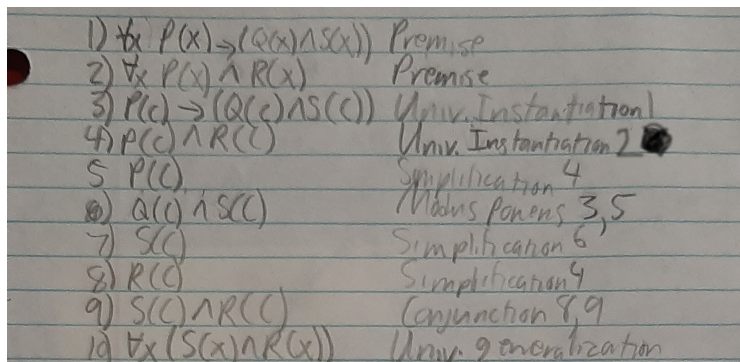 1) ∀x P(x)→(Q(x)∧S(x)) Premise
2) ∀x P(x)∧R(x) Premise
3) P(c)→(Q(c)∧S(c)) Univ. Instantiation 1
4) P(c)∧R(c) Univ. Instantiation 2
5 P(c) Simplification 4
6) Q(c)∧S(c) Modus Ponens 3,5
7) S(c) Simplification 6
8) R(c) Simplification 4
9) S(c)∧R(c) Conjunction 8,9
10) ∀x(S(x)∧R(x)) Univ. generalization